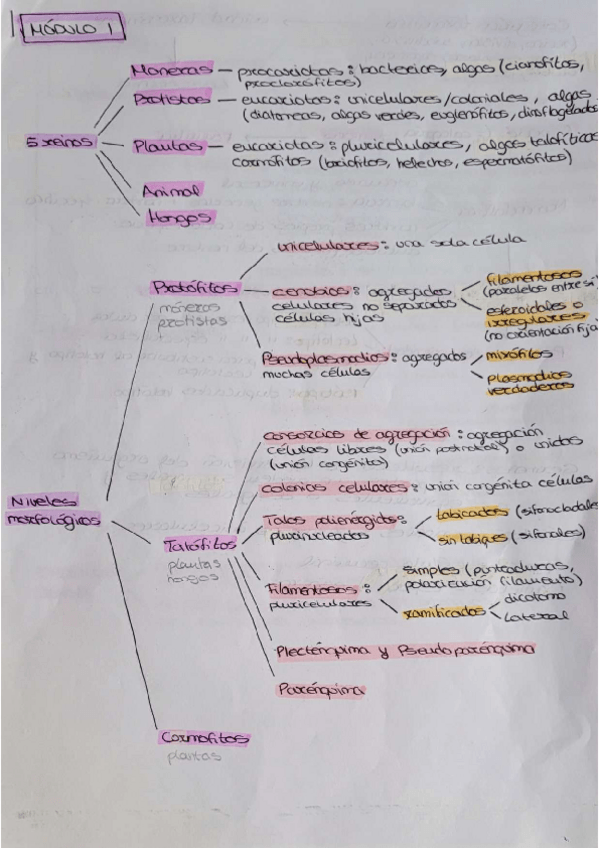 MÓDULO 1
Moneras — procariotas: bacterias, algas (cianofitos,
proclorófitos)
Protistos — eucariotas: unicelulares/coloniales, algas
(diatomeas, algas verdes, euglenófitos, dinoflagelados
5 reinos
Plantas — eucariotas: pluricelulares, algas talofíticas
cormófitos (briofitos, helechos, espermatófitos)
Animal
Hongos
unicelulares: una sola célula
Protófitos
móneras
protistas
cenobios: agregados
celulares no separados
células hijas
filamentosos
(paralelos entre sí
esferoidales o
irregulares
(no orientación fija
Pseudoplasmodios: agregados
muchas células
mixófilos
plasmodios
verdaderos
consorcios de agregación: agregación
células libres (unión postnatal) o unidas
(unión congénita)
colonias celulares: unión congénita células
Niveles
morfológicos
Talófitos
plantas
hongos
Talos polienérgidos:
plurinucleados
tabicados (sifonocladales
sin tabiques (sifonales)
Filamentosos:
pluricelulares
simples (puntoaduras,
polarización filamento)
ramificados
dicotomo
Lateral
Plecténquima y Pseudoparénquima
Parénquima
Cormofitos
plantas